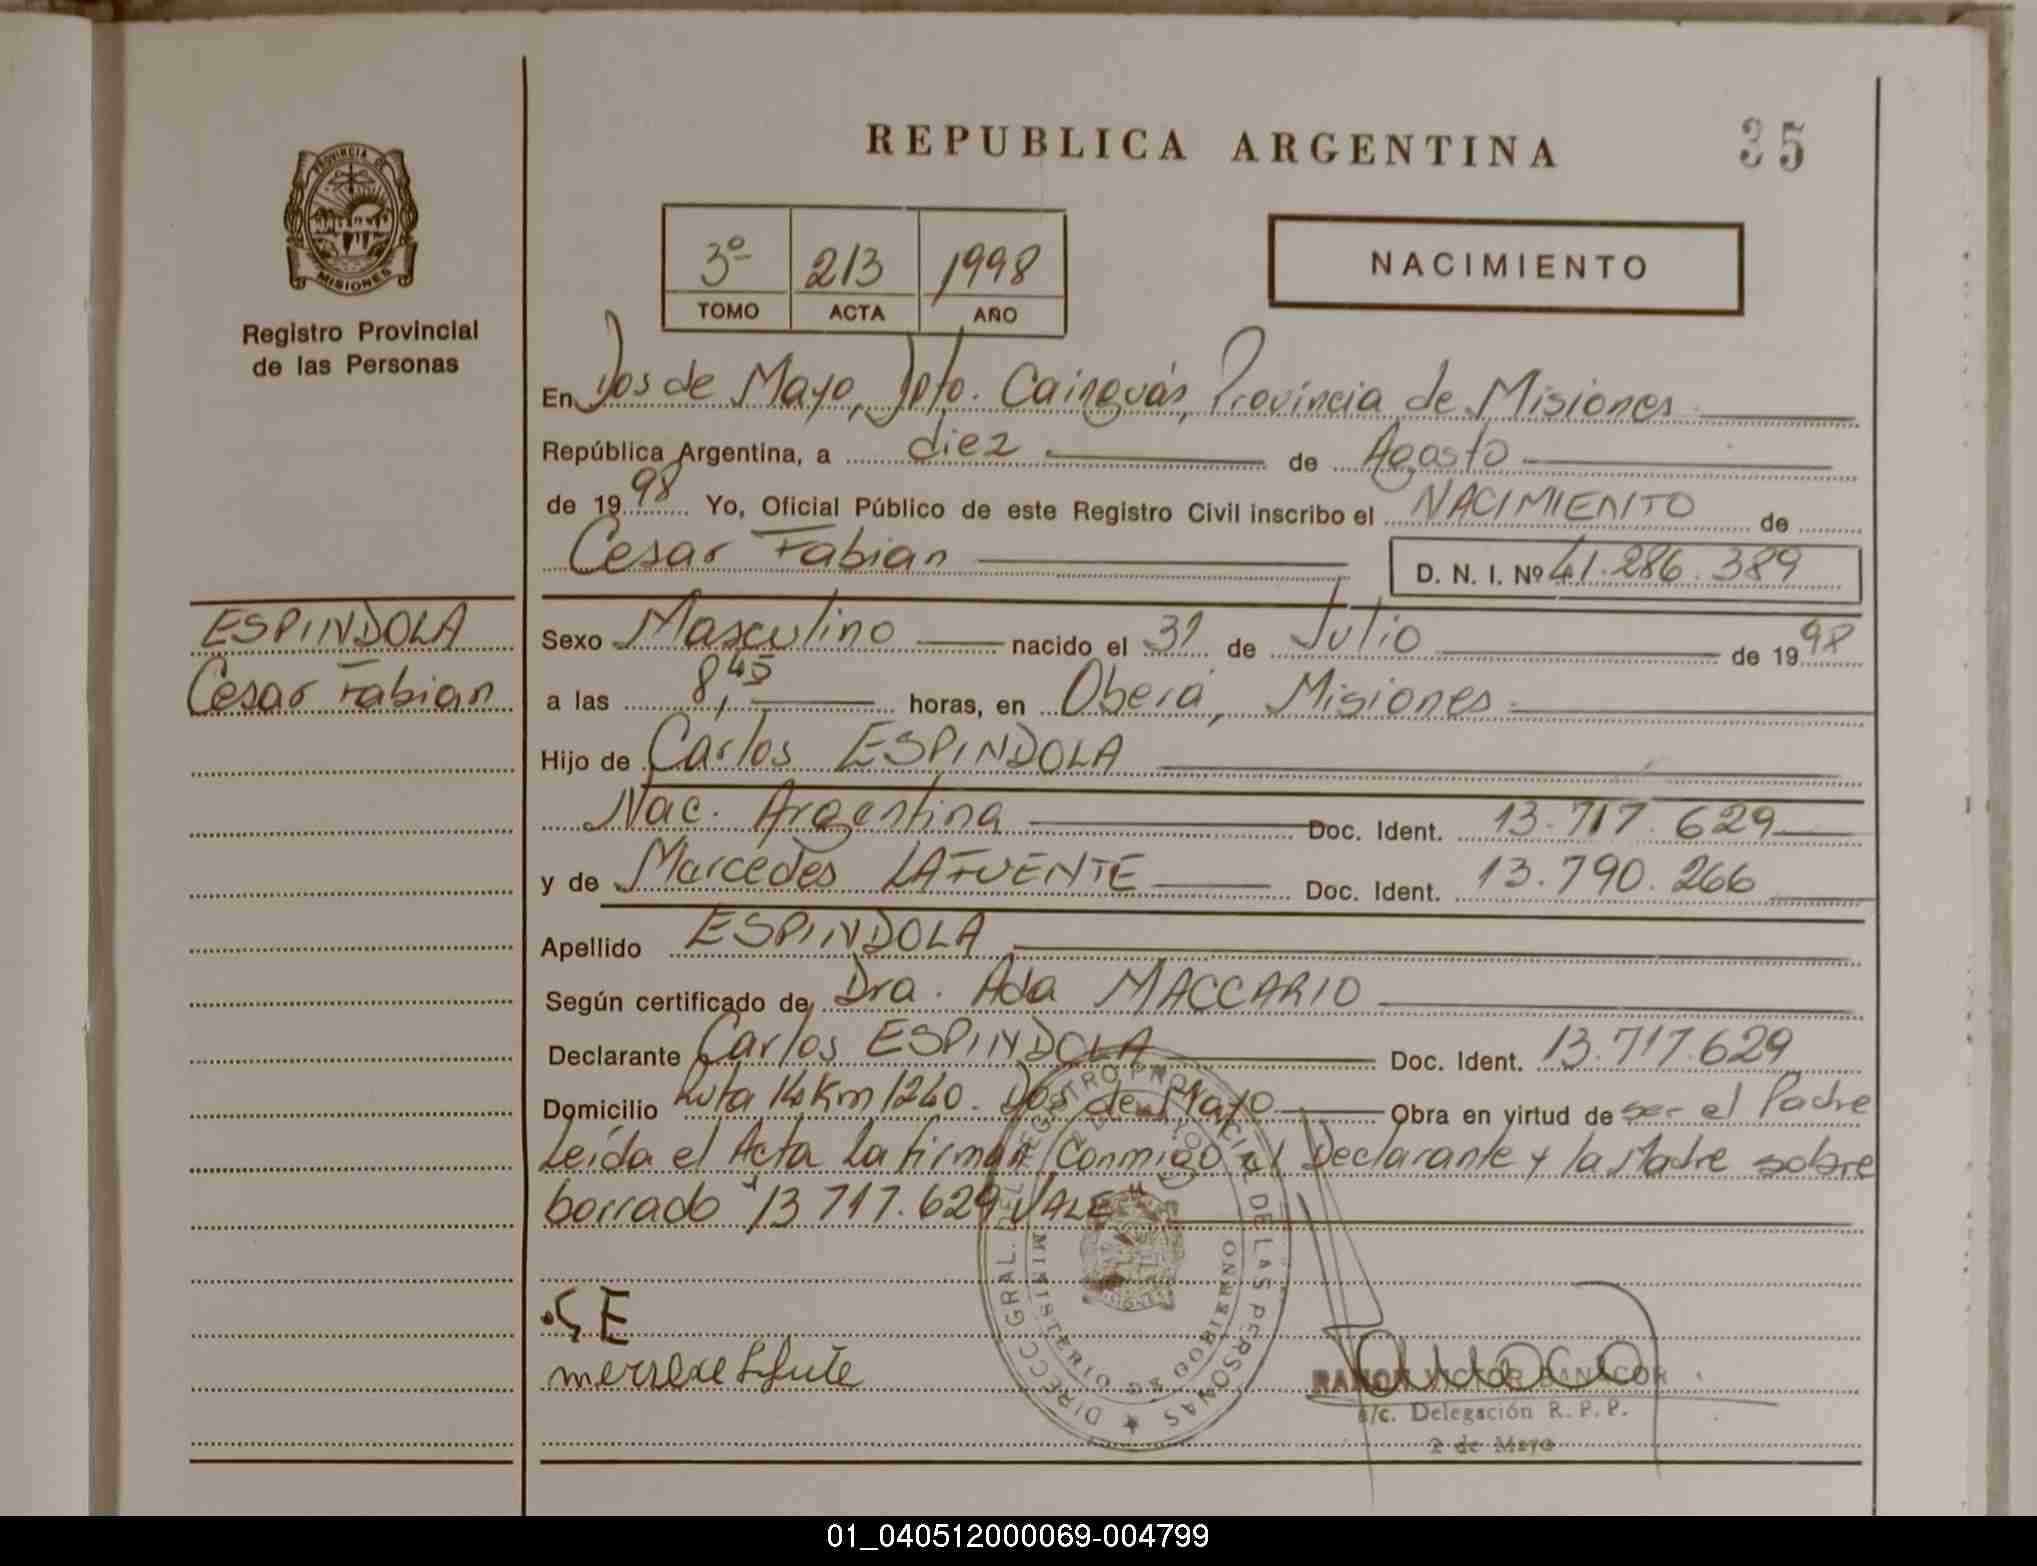 REPUBLICA ARGENTINA
35
PROVINCIA DE
MISIONES
Registro Provincial
de las Personas
3º 213 1998
TOMO ACTA AÑO
NACIMIENTO
En Dos de Mayo, Dpto. Cainguás, Provincia de Misiones
República Argentina, a diez de Agosto
de 1998 Yo, Oficial Público de este Registro Civil inscribo el NACIMIENTO de
Cesar Fabian D. N. I. Nº 41.286.389
ESPINDOLA
Cesar Fabian
Sexo Masculino nacido el 31 de Julio de 1998
a las 8,45 horas, en Oberá, Misiones
Hijo de Carlos ESPINDOLA
Nac. Argentina Doc. Ident. 13.717.629
y de Marcedes LAFUENTE Doc. Ident. 13.790.266
Apellido ESPINDOLA
Según certificado de Dra. Ada MACCARIO
Declarante Carlos ESPINDOLA Doc. Ident. 13.717.629
Domicilio Ruta 14 Km 1240. Dos de Mayo Obra en virtud de ser el Padre
Leída el Acta la firman Conmigo el Declarante y la Madre sobre
borrado "13 717.629 VALE"
DIRECC. GRAL. DEL REGISTRO PROVINCIAL DE LAS PERSONAS
MINISTERIO DE GOBIERNO
RAMON
a/c. Delegación R. P. P.
2 de Mayo
01_040512000069-004799